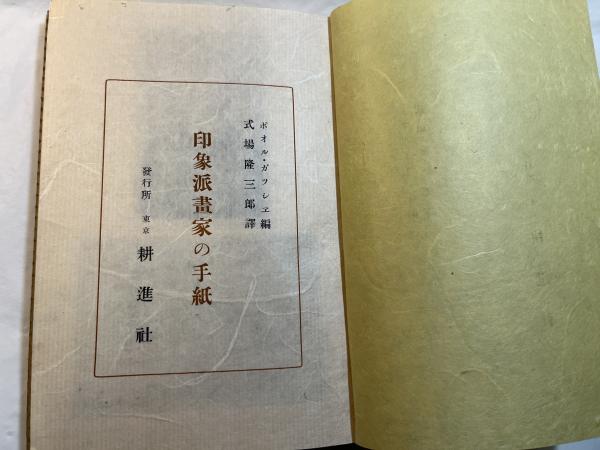 ポオル・ガツシヱ編
式場隆三郎譯
印象派畫家の手紙
發行所 東京 耕進社